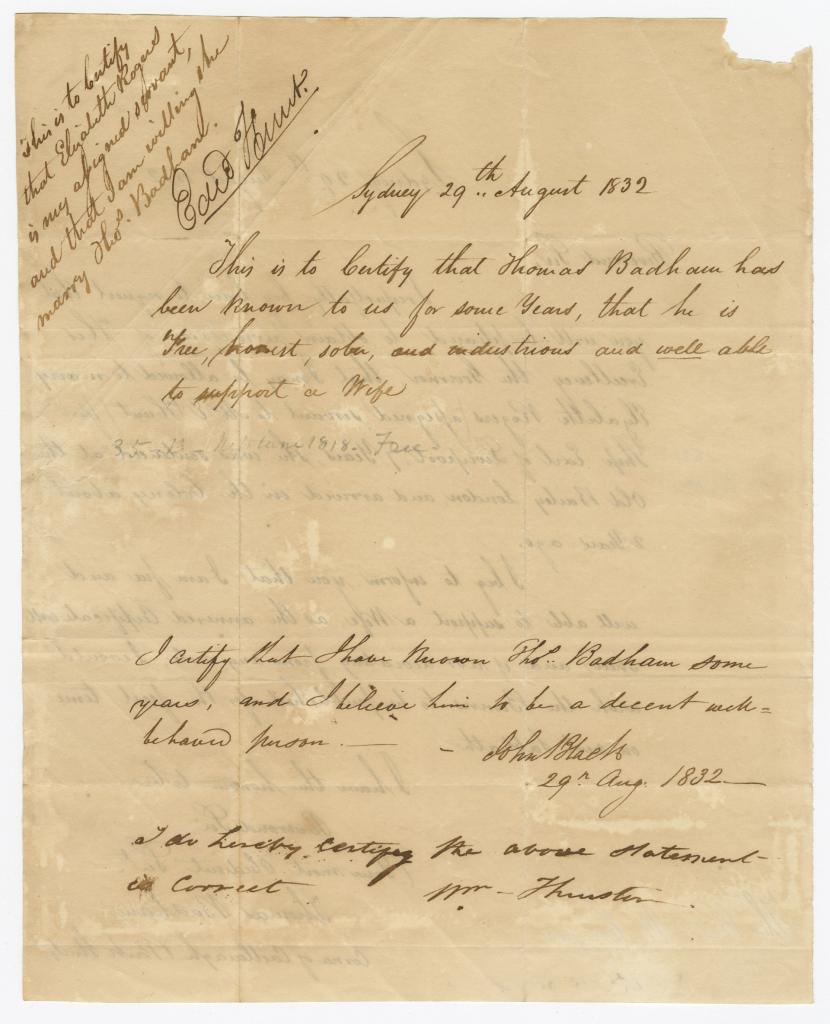 This is to Certify
that Elizabeth Rogers
is my assigned servant,
and that I am willing she
marry Thos. Badham.
Edwd Hunt.
Sydney 29th August 1832
This is to Certify that Thomas Badham has
been known to us for some Years, that he is
Free, honest, sober, and industrious and well able
to support a Wife
1818. Free
I certify that I have known Thos. Badham some
years, and I believe him to be a decent well=
behaved person. —
John Black
29th Aug. 1832 —
I do hereby certify the above statement
is correct
Wm - Thurston